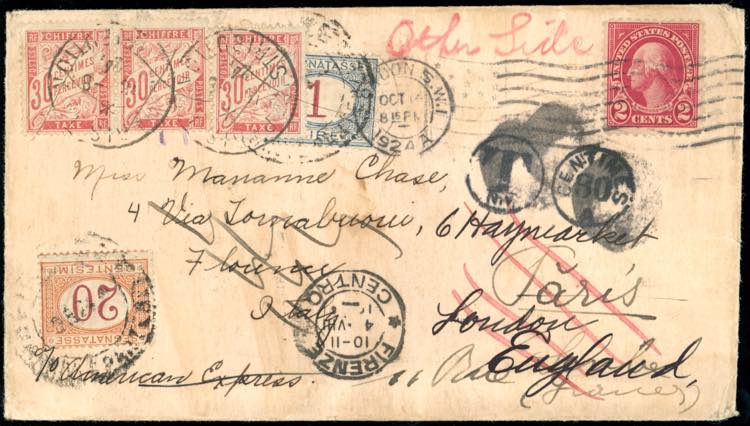 Other Side
RF CHIFFRE POSTES
30 CENTIMES
À PERCEVOIR
TAXE
RF CHIFFRE POSTES
30 CENTIMES
À PERCEVOIR
TAXE
RF CHIFFRE
30 CENTIMES
À PERCEVOIR
TAXE
1
LONDON S.W.1
OCT
8 15 PM
1924
UNITED STATES POSTAGE
2 CENTS 2
T
CENTIMES
Miss Marianne Chase,
4 Via Tornabuoni,
Florence
Italy
6 Haymarket
London
England,
Paris
11 Rue
(France)
c/o American Express.
20
SEGNATASSE
CENTESIMI
FIRENZE
CENTRO
10-11
4